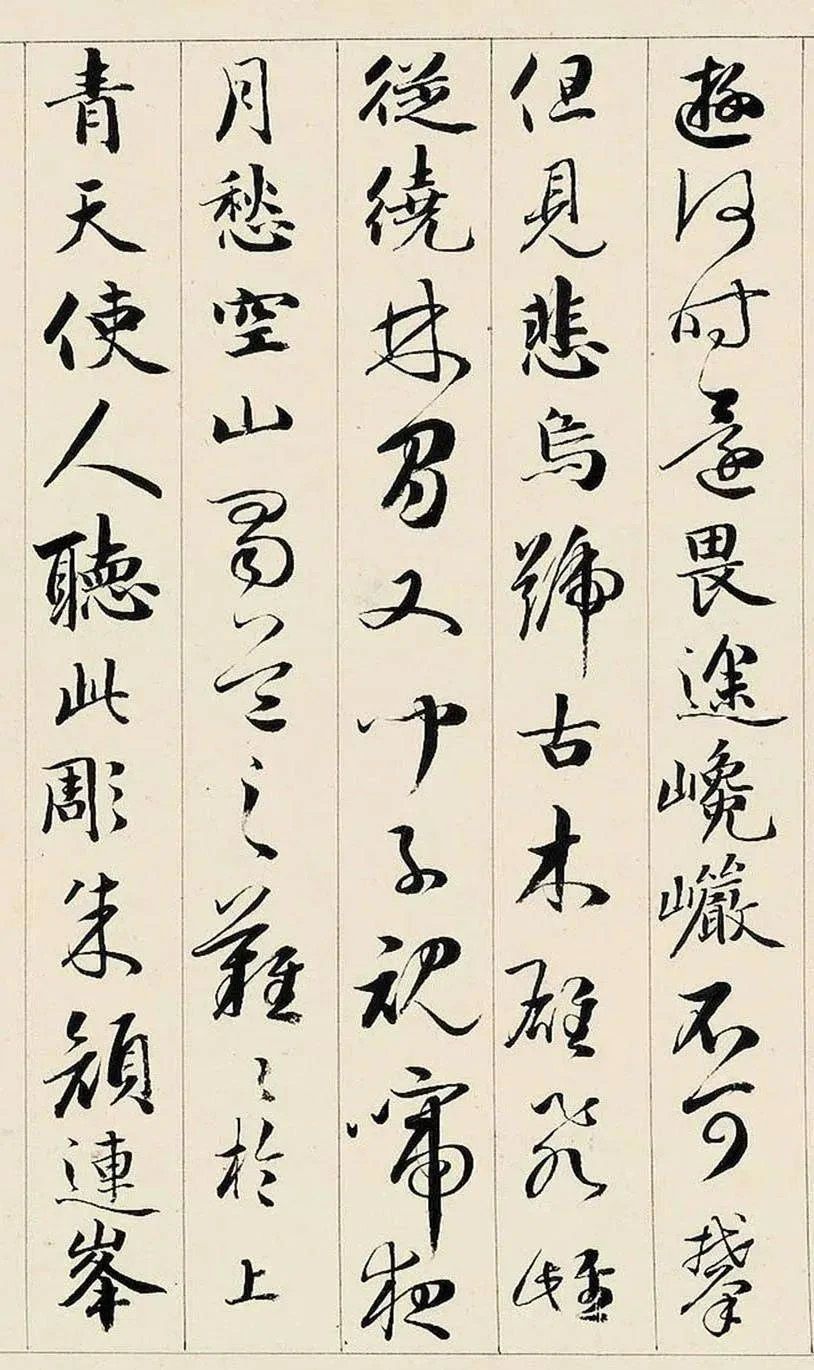 遊何时還畏途巉巖不可攀
但見悲鳥號古木雄飛雌
從繞林間又聞子規啼夜
月愁空山蜀道之難〻於上
青天使人聽此彫朱顏連峯